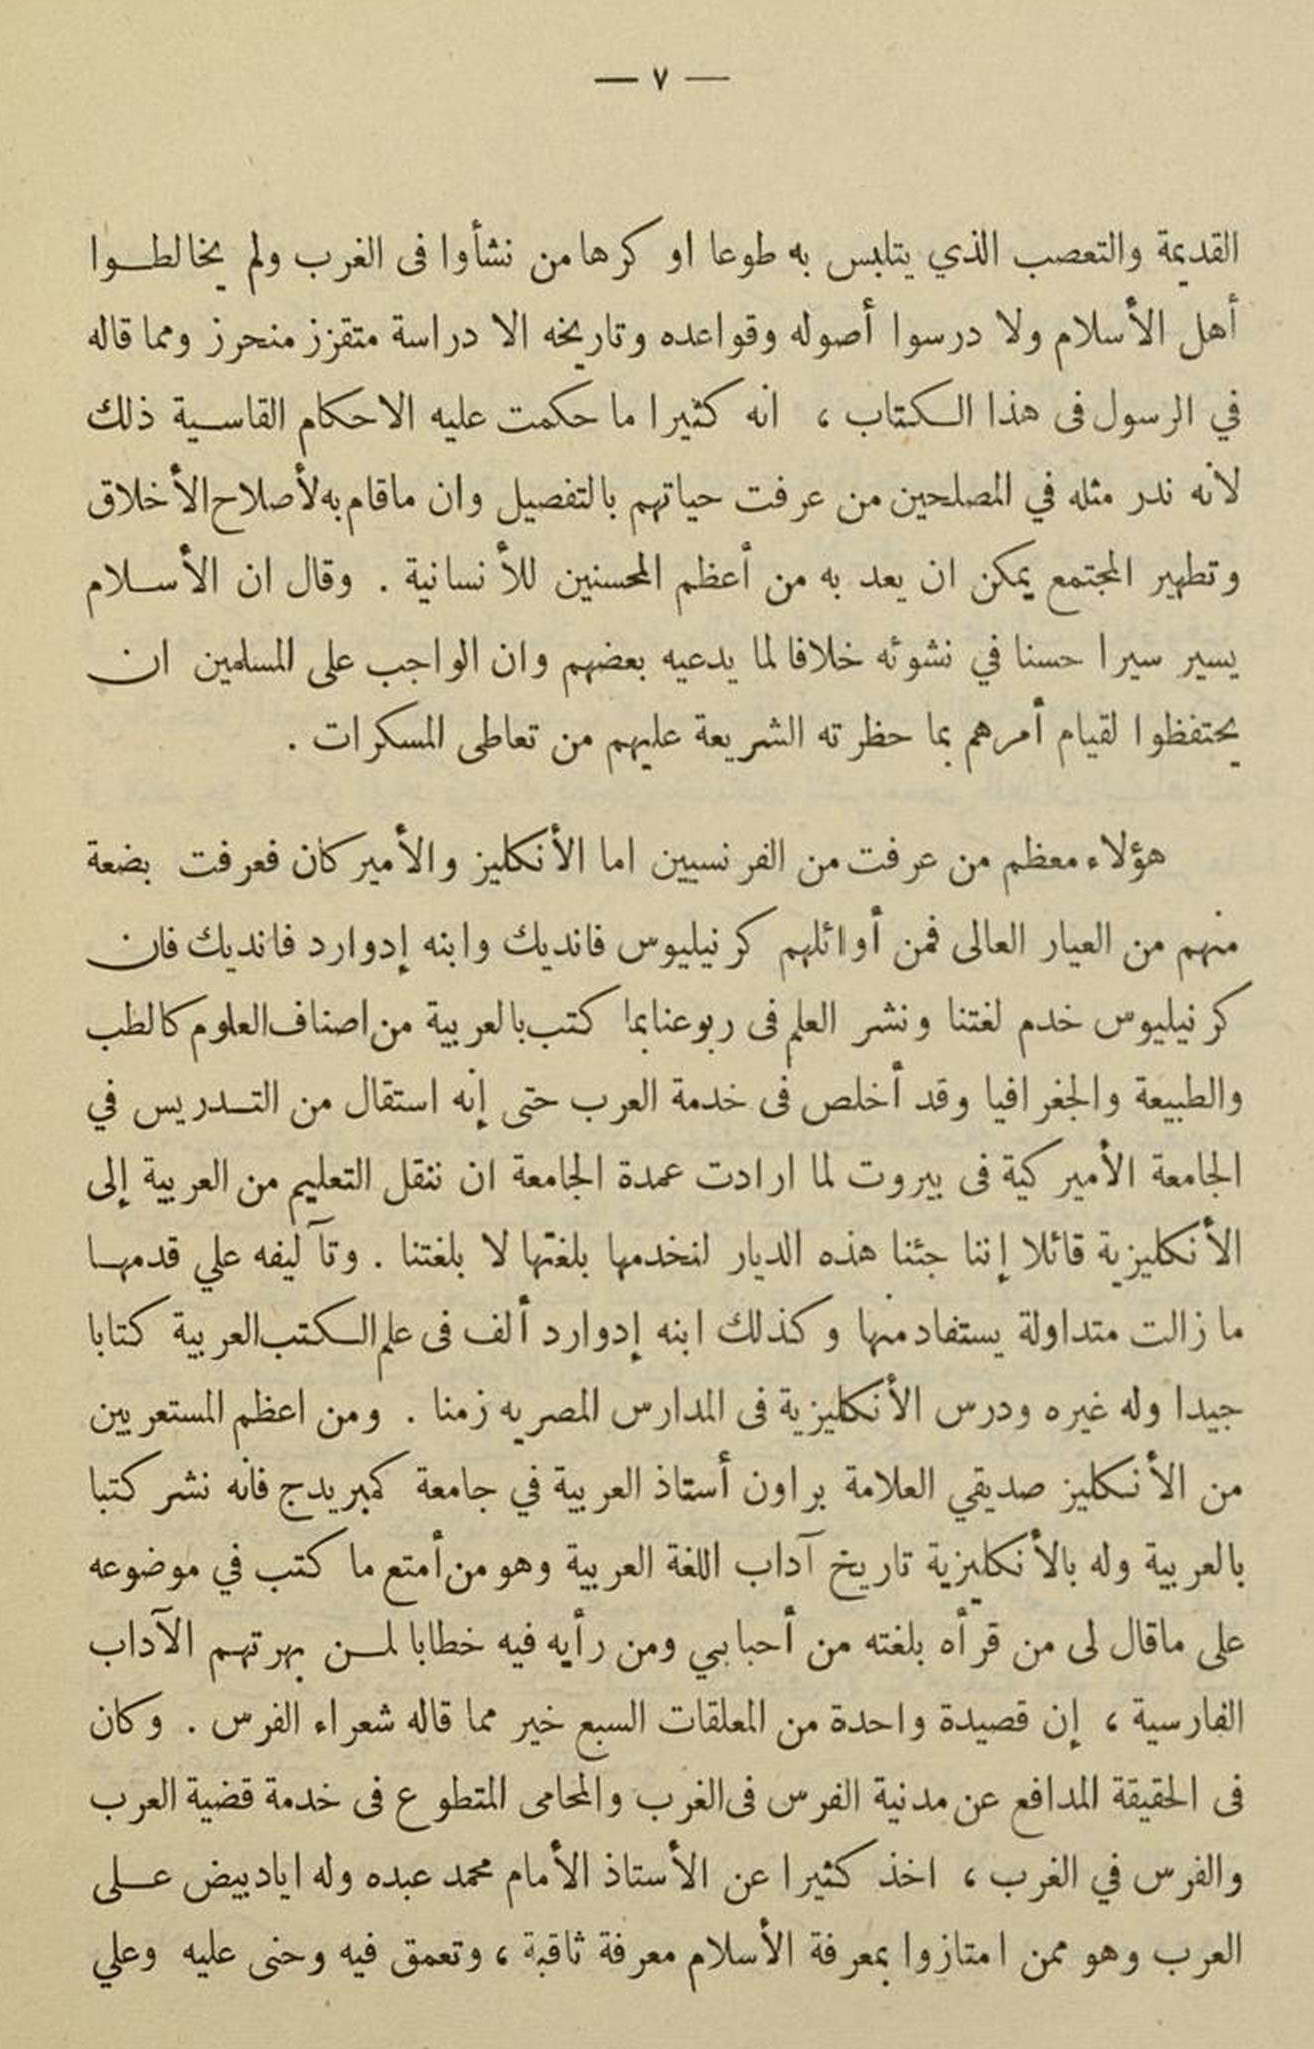 — ٧ —
القديمة والتعصب الذي يتلبس به طوعا او كرها من نشأوا فى الغرب ولم يخالطوا
أهل الأسلام ولا درسوا أصوله وقواعده وتاريخه الا دراسة متقزز منحرز ومما قاله
في الرسول فى هذا الكتاب ، انه كثيرا ما حكمت عليه الاحكام القاسية ذلك
لأنه ندر مثله في المصلحين من عرفت حياتهم بالتفصيل وان ماقام به لأصلاح الأخلاق
وتطهير المجتمع يمكن ان يعد به من أعظم المحسنين للأنسانية . وقال ان الأسلام
يسير سيرا حسنا في نشوئه خلافا لما يدعيه بعضهم وان الواجب على المسلمين ان
يحتفظوا لقيام أمرهم بما حظرته الشريعة عليهم من تعاطى المسكرات .
هؤلاء معظم من عرفت من الفرنسيين اما الأنكليز والأميركان فعرفت بضعة
منهم من العيار العالى فمن أوائلهم كرنيليوس فانديك وابنه إدوارد فانديك فان
كرنيليوس خدم لغتنا ونشر العلم فى ربوعنا بما كتب بالعربية من اصناف العلوم كالطب
والطبيعة والجغرافيا وقد أخلص فى خدمة العرب حتى إنه استقال من التدريس في
الجامعة الأميركية فى بيروت لما ارادت عمدة الجامعة ان ننقل التعليم من العربية إلى
الأنكليزية قائلا إننا جئنا هذه الديار لنخدمها بلغتها لا بلغتنا . وتآليفه علي قدمها
ما زالت متداولة يستفاد منها وكذلك ابنه إدوارد ألف فى علم الكتب العربية كتابا
جيدا وله غيره ودرس الأنكليزية فى المدارس المصريه زمنا . ومن اعظم المستعربين
من الأنكليز صديقي العلامة براون أستاذ العربية في جامعة كمبريدج فانه نشر كتبا
بالعربية وله بالأنكليزية تاريخ آداب اللغة العربية وهو من أمتع ما كتب في موضوعه
على ماقال لى من قرأه بلغته من أحبابي ومن رأيه فيه خطابا لمن بهرتهم الآداب
الفارسية ، إن قصيدة واحدة من المعلقات السبع خير مما قاله شعراء الفرس . وكان
فى الحقيقة المدافع عن مدنية الفرس فى الغرب والمحامى المتطوع فى خدمة قضية العرب
والفرس في الغرب ، اخذ كثيرا عن الأستاذ الأمام محمد عبده وله اياد بيض على
العرب وهو ممن امتازوا بمعرفة الأسلام معرفة ثاقبة ، وتعمق فيه وحنى عليه وعلي